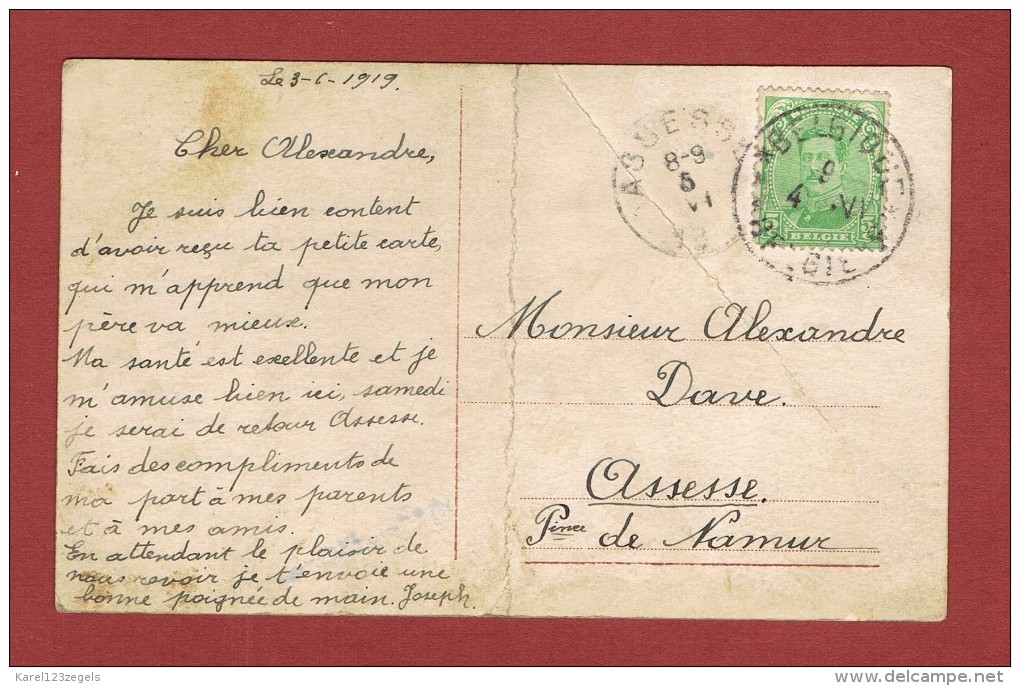 Le 3-6-1919.
Cher Alexandre,
Je suis bien content
d'avoir reçu ta petite carte,
qui m'apprend que mon
père va mieux.
Ma santé est excellente et je
m'amuse bien ici, samedi
je serai de retour Assesse.
Fais des compliments de
ma part à mes parents
et à mes amis.
En attendant le plaisir de
nous revoir je t'envoie une
bonne poignée de main. Joseph.
ASSESSE
8-9
5
VI
19
BELGIQUE
9
4 VI
5 5
BELGIE
Monsieur Alexandre
Dave.
Assesse.
Pince de Namur
Karel123zegels
delcampe.net